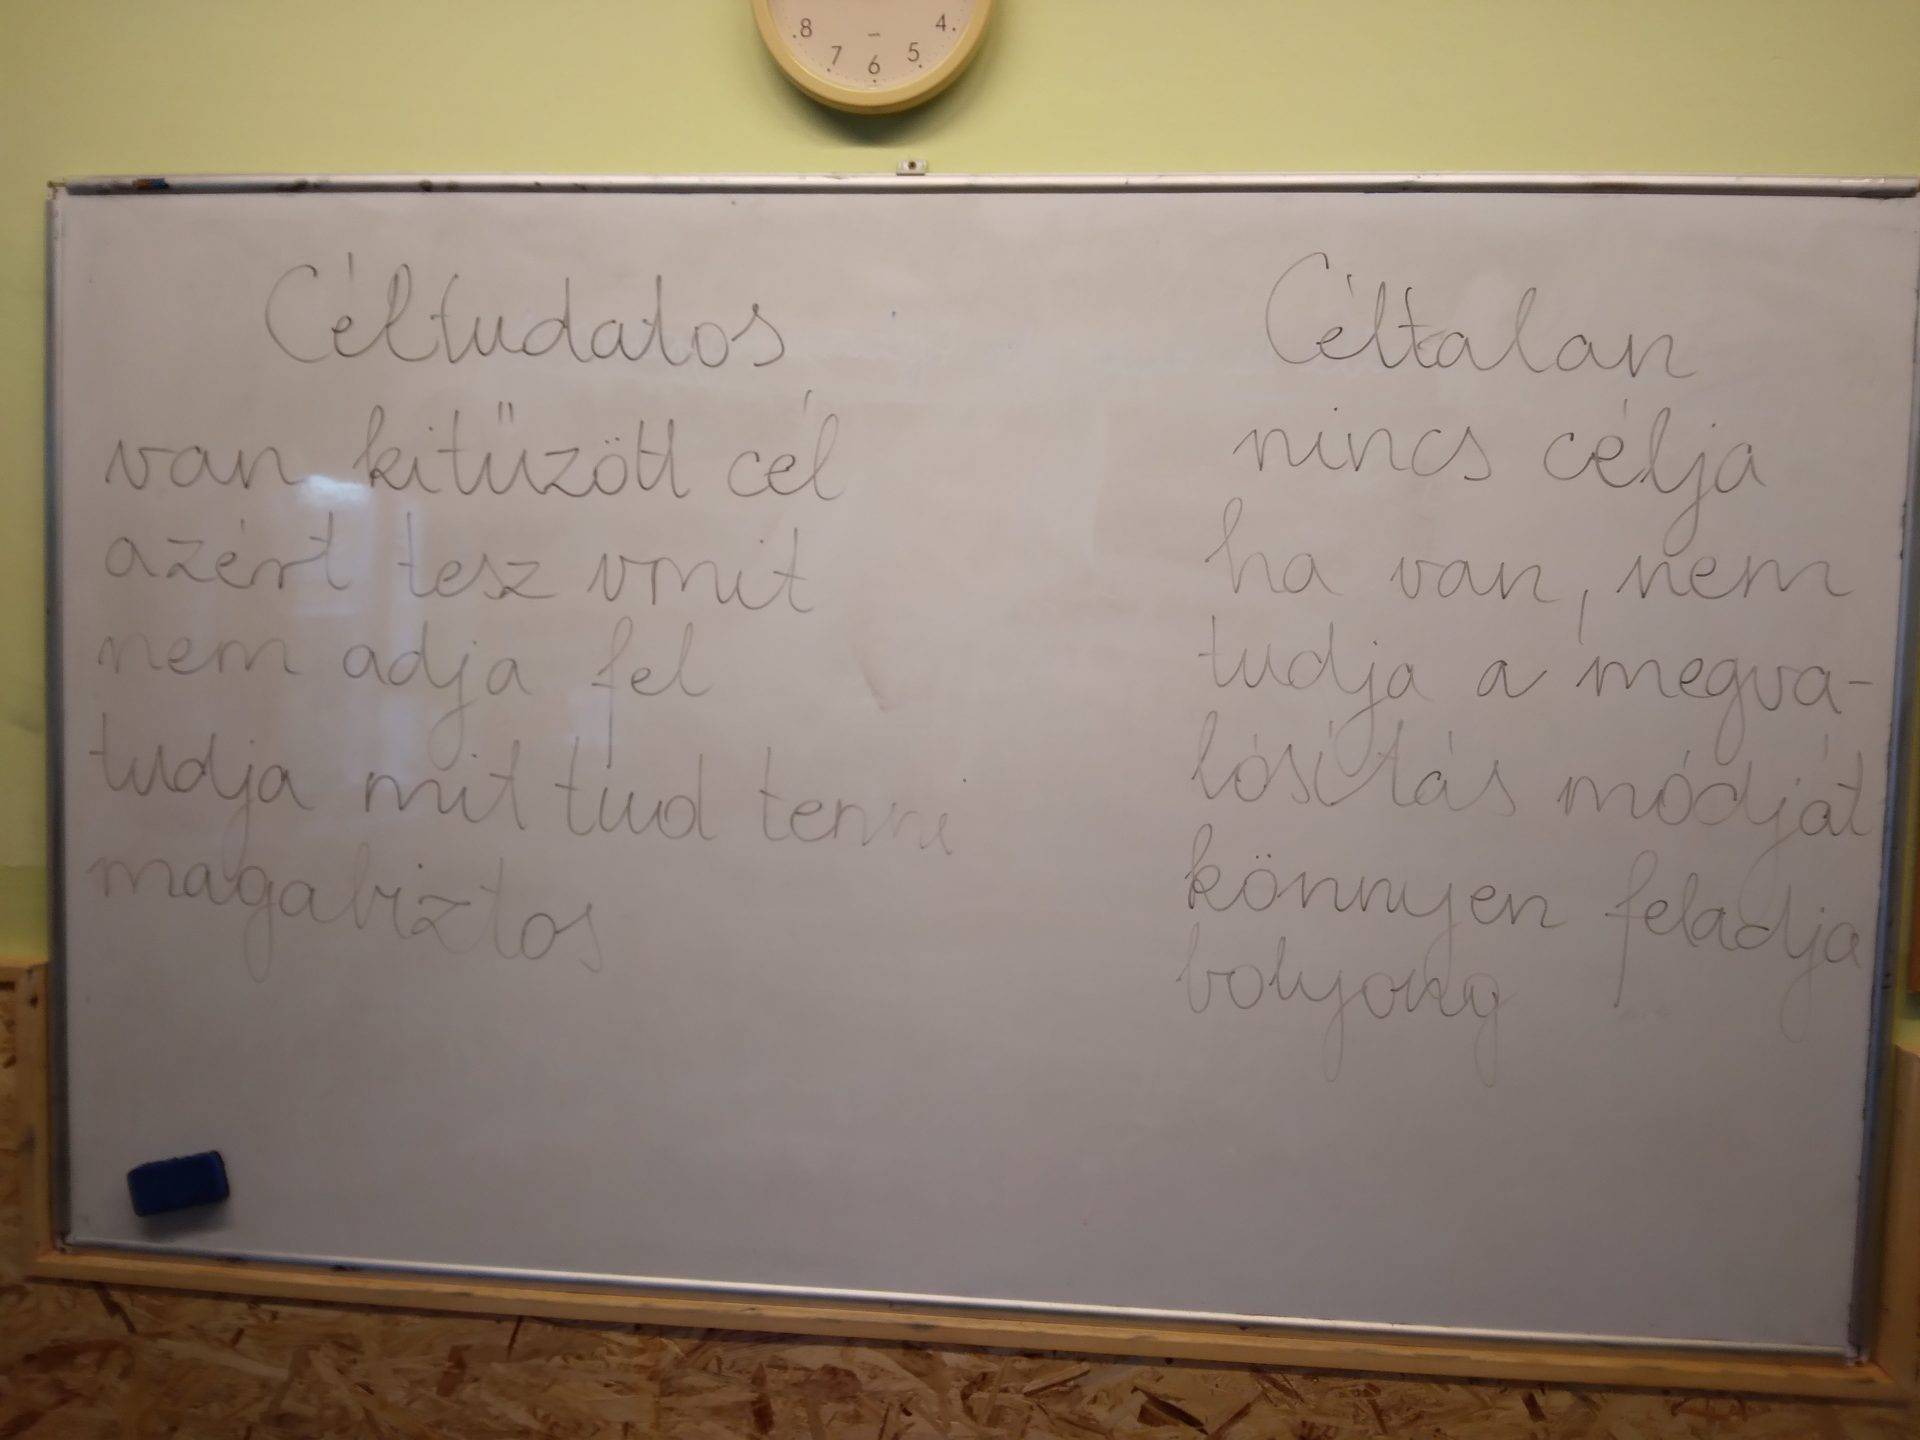 8 7 6 5 4
Céltudatos
van kitűzött cél
azért tesz vmit
nem adja fel
tudja mit tud tenni
magabiztos
Céltalan
nincs célja
ha van, nem
tudja a megva-
lósítás módját
könnyen feladja
bolyong